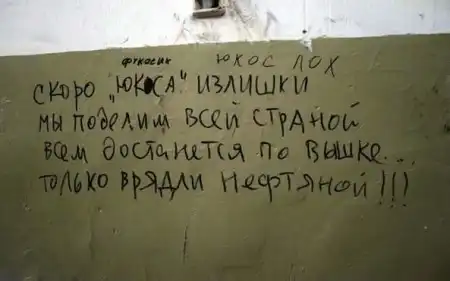 фукосик ЮКОС ЛОХ
СКОРО "ЮКОСА" ИЗЛИШКИ
МЫ ПОДЕЛИМ ВСЕЙ СТРАНОЙ
ВСЕМ ДОСТАНЕТСЯ ПО ВЫШКЕ...
ТОЛЬКО ВРЯДЛИ НЕФТЯНОЙ!!!